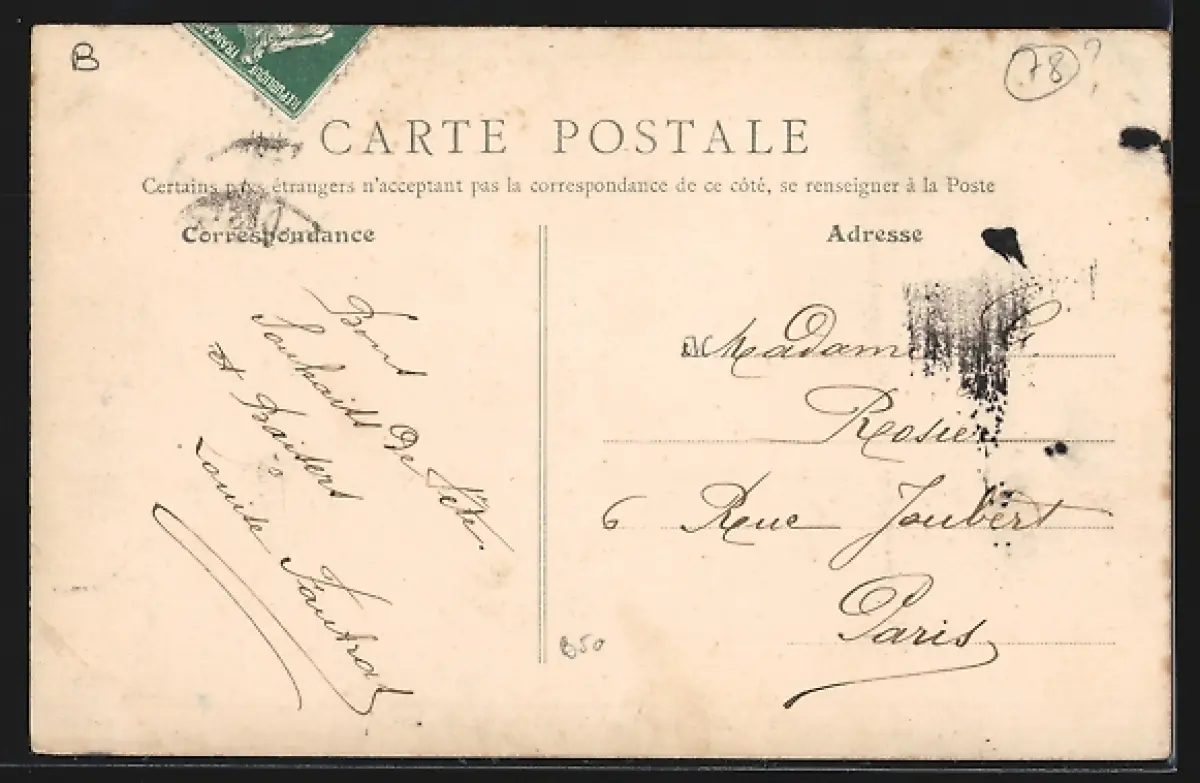 B
78?
REPUBLIQUE FRANÇAISE
CARTE POSTALE
Certains pays étrangers n'acceptant pas la correspondance de ce côté, se renseigner à la Poste
Correspondance
Bons
Souhaits De Fête
et Baisers
Louise
Adresse
Madame G.
Rosier
6 Rue Joubert
Paris
B50